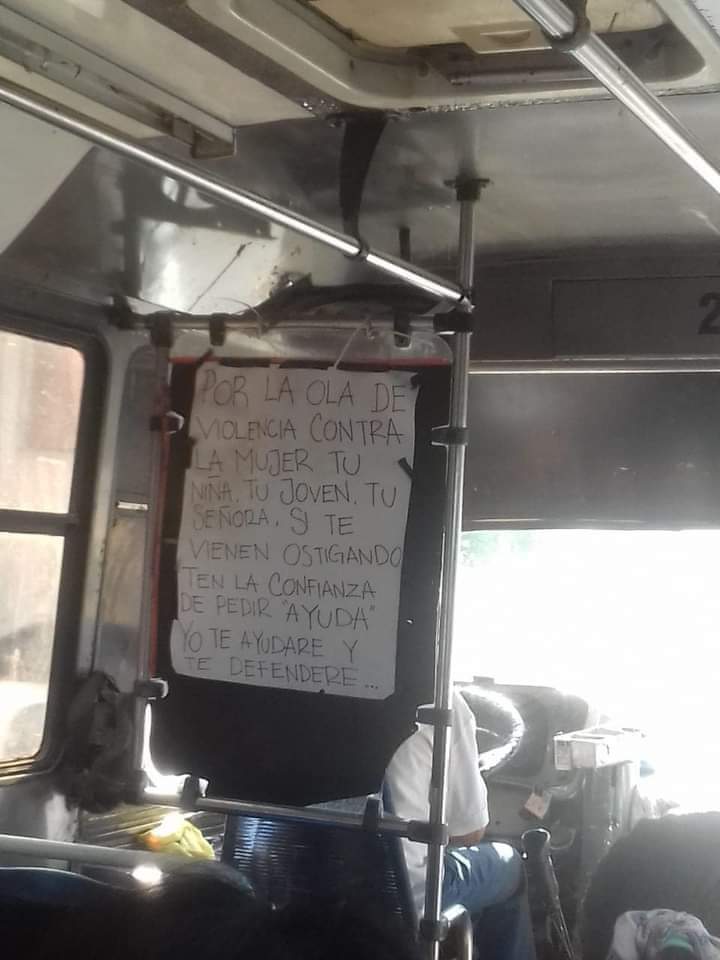 POR LA OLA DE
VIOLENCIA CONTRA
LA MUJER TU
NIÑA, TU JOVEN, TU
SEÑORA, SI TE
VIENEN OSTIGANDO
TEN LA CONFIANZA
DE PEDIR "AYUDA"
YO TE AYUDARE Y
TE DEFENDERE...
2